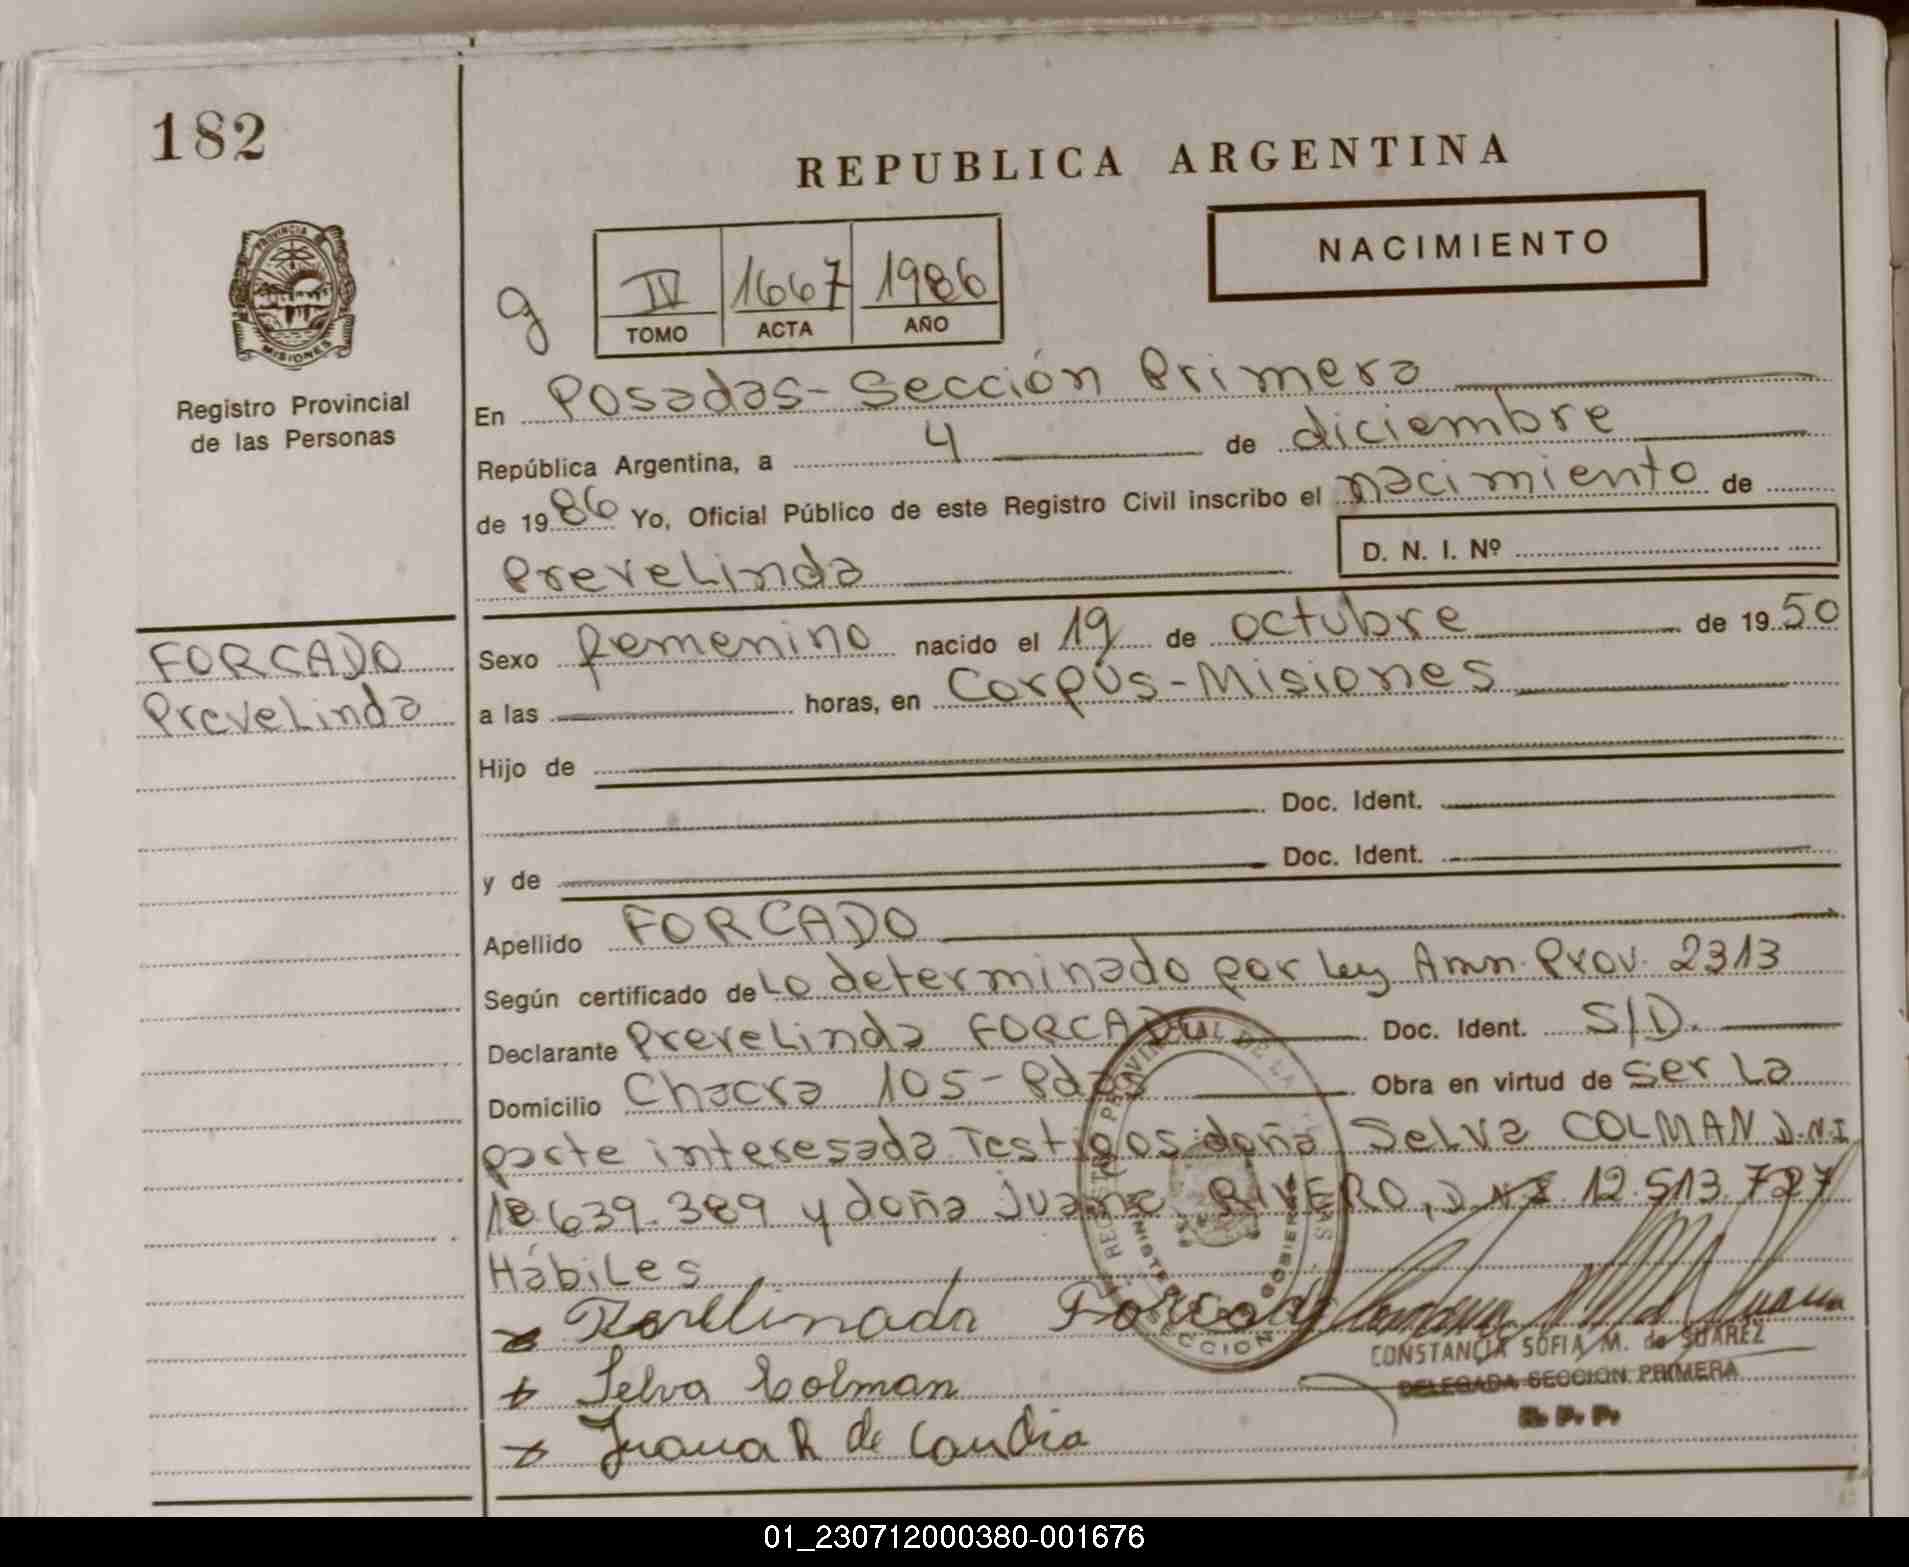 182
REPUBLICA ARGENTINA
PROVINCIA
MISIONES
Registro Provincial
de las Personas
NACIMIENTO
g
IV 1667 1986
TOMO ACTA AÑO
En Posadas - Sección Primera
República Argentina, a 4 de diciembre
de 1986 Yo, Oficial Público de este Registro Civil inscribo el nacimiento de
Prevelinda D. N. I. Nº
FORCADO
Prevelinda
Sexo femenino nacido el 19 de octubre de 1950
a las horas, en Corpus - Misiones
Hijo de
Doc. Ident.
y de Doc. Ident.
Apellido FORCADO
Según certificado de Lo determinado por Ley Amn. Prov. 2313
Declarante Prevelinda FORCADO Doc. Ident. S/D.
Domicilio Chacra 105 - Pdas Obra en virtud de ser La
parte interesada Testigos: doña Selva COLMAN D.N.I
18.639.389 y doña Juana RIVERO, D.N.I. 12.513.727
Hábiles
Forcado
Selva Colman
Juana R de Candia
CONSTANCIA SOFIA M. de SUAREZ
DELEGADA SECCION PRIMERA
R. P. P.
01_230712000380-001676